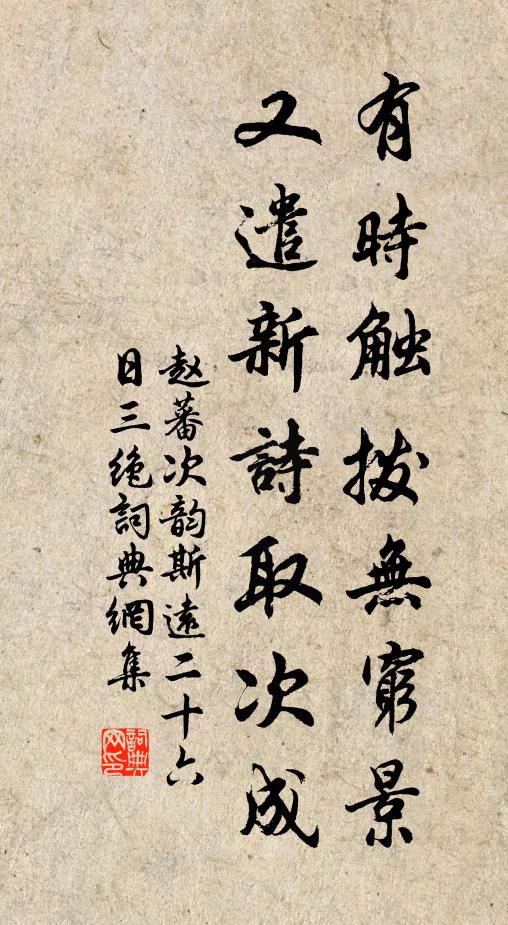 有時触拨無窮景
又遣新詩取次成
赵蕃次韵斯遠二十六
日三绝詞典網集
詞典网印